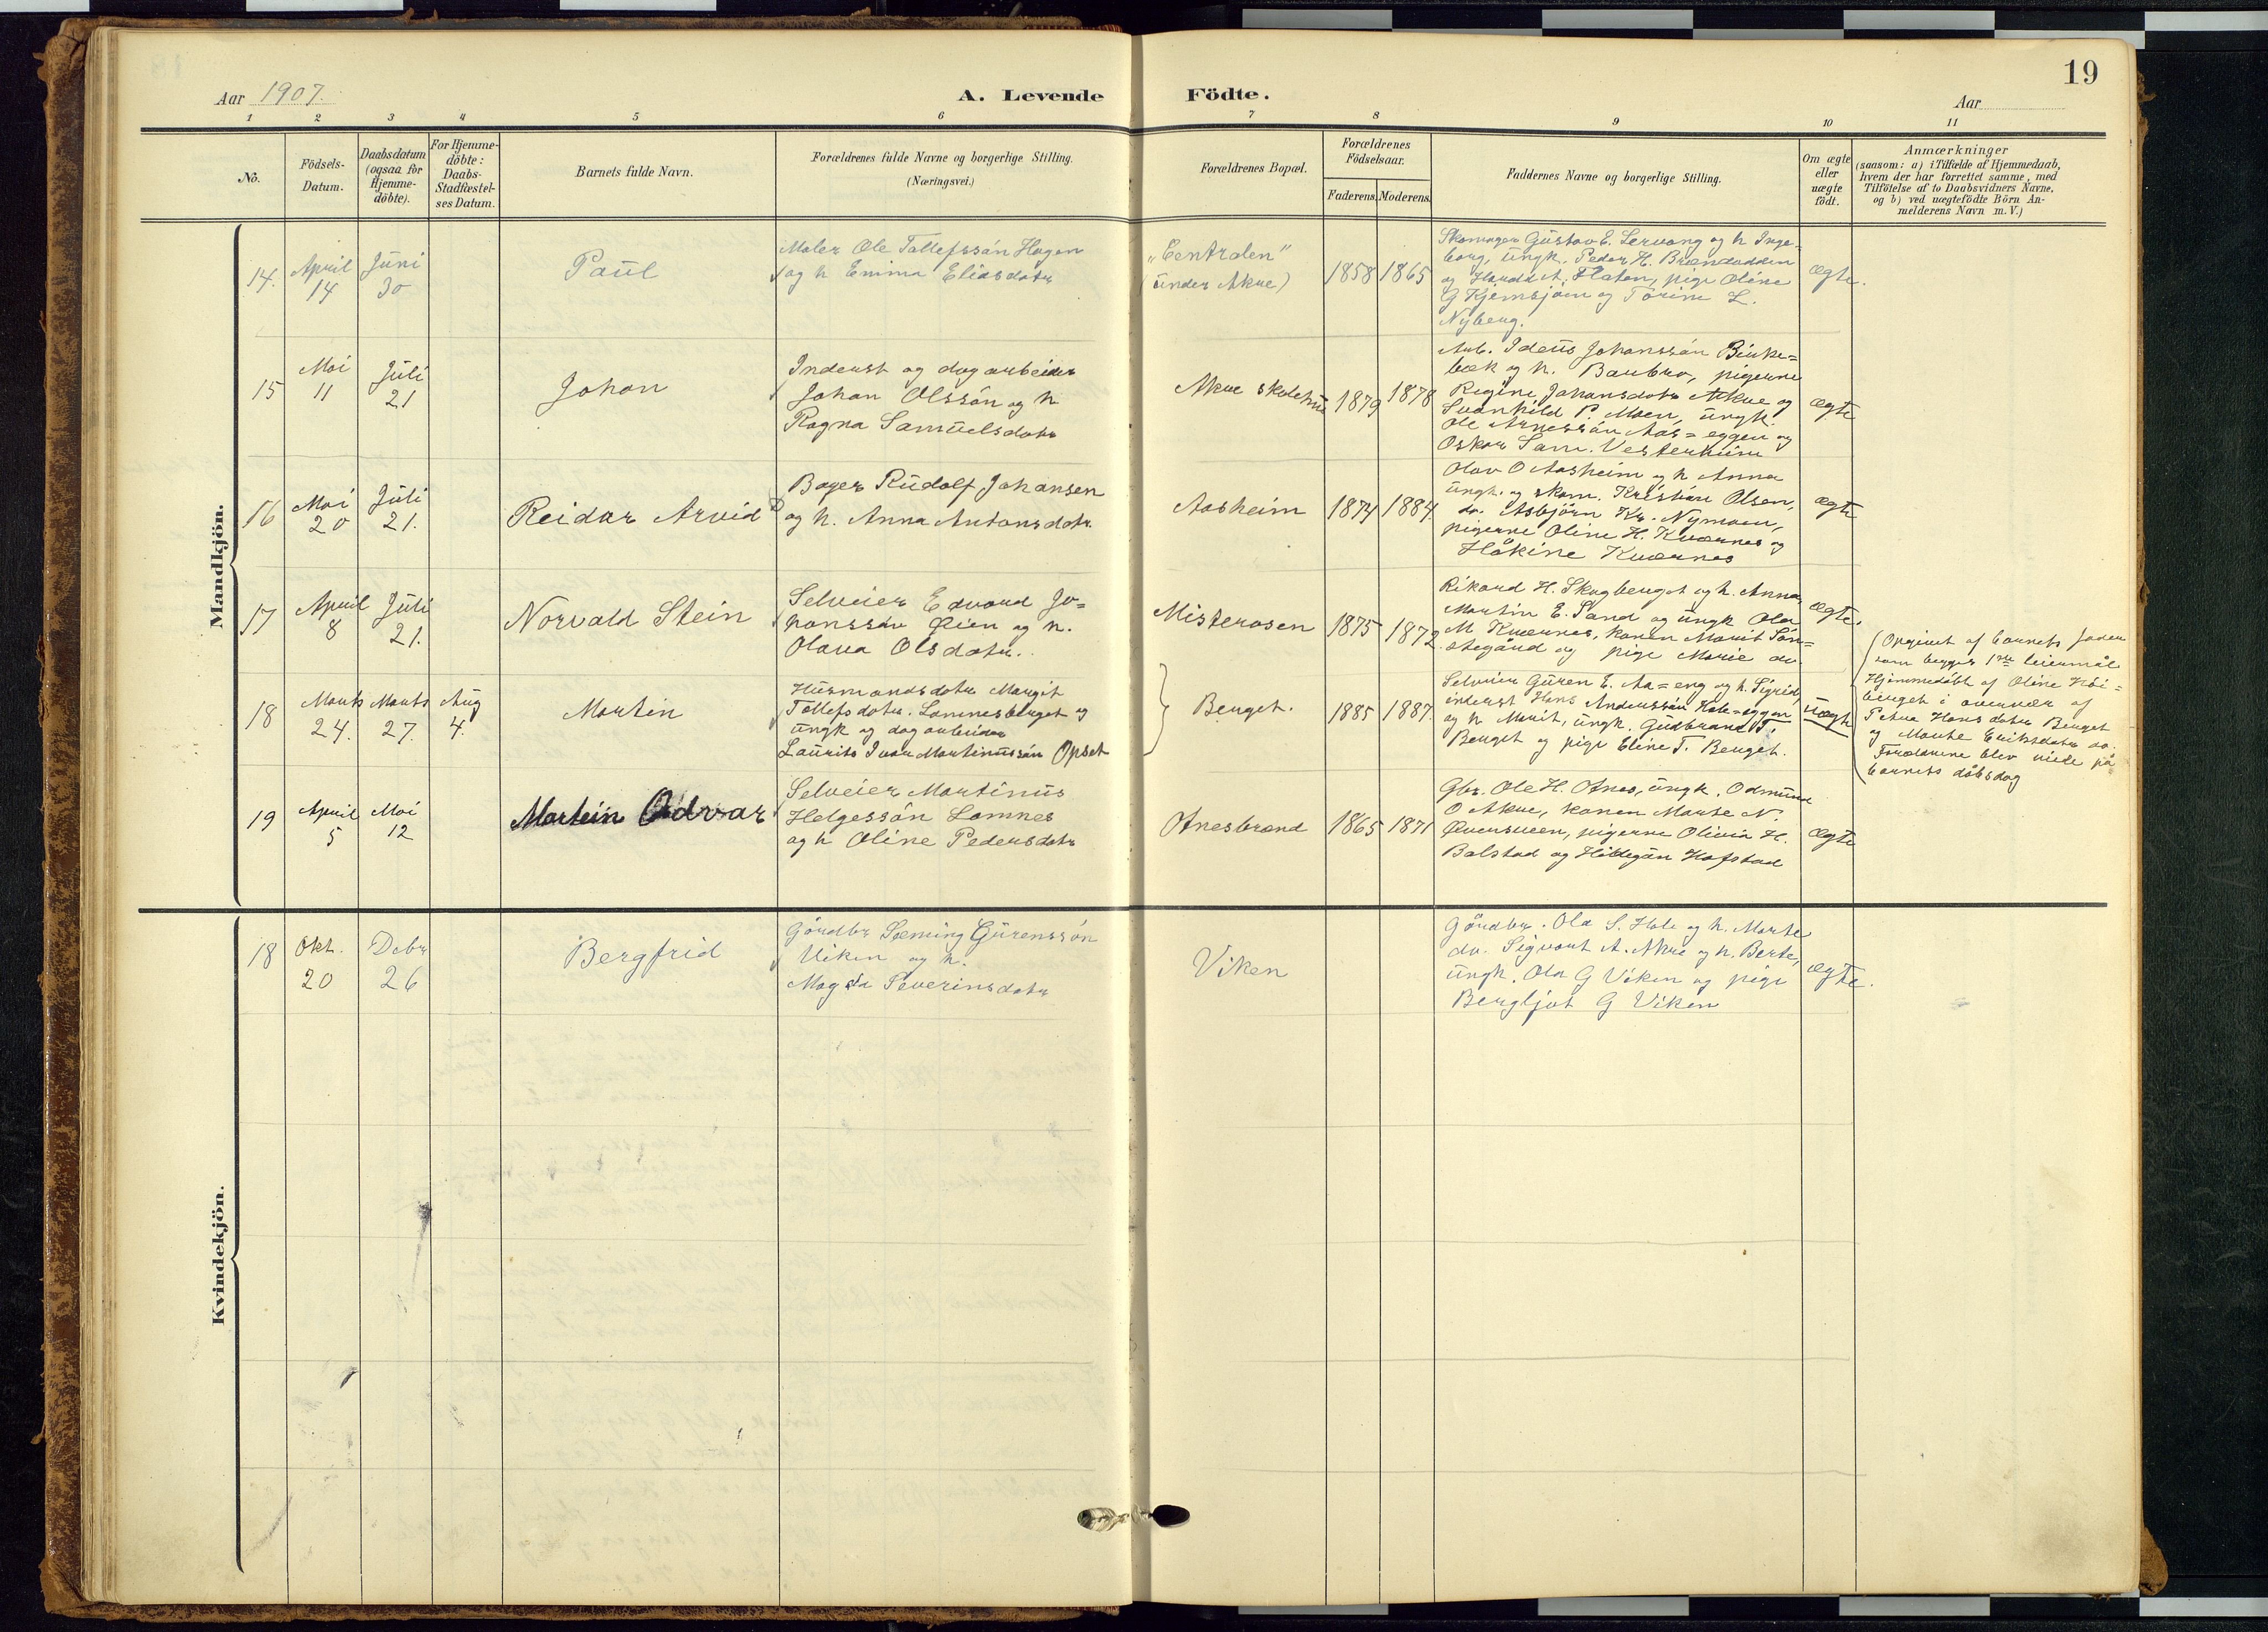 19
Aar 1907.
A. Levende Födte.
Aar
1 2 3 4 5 6 7 8 9 10 11
No.
Födsels-
Datum.
Daabsdatum
(ogsaa for
Hjemme-
döbte).
For Hjemme-
döbte:
Daabs-
Stadfæstel-
ses Datum.
Barnets fulde Navn.
Forældrenes fulde Navne og borgerlige Stilling.
(Næringsvei.)
Forældrenes Bopæl.
Forældrenes
Födselsaar.
Faderens. Moderens.
Faddernes Navne og borgerlige Stilling.
Om ægte
eller
uægte
födt.
Anmærkninger
(saasom: a) i Tilfælde af Hjemmedaab,
hvem der har forrettet samme, med
Tilföielse af to Daabsvidners Navne,
og b) ved uægtefödte Börn An-
melderens Navn m. V.)
Mandkjön.
14.
April
14
Juni
30
Paul
Maler Ole Tollefssön Hagen
og h Emma Eliasdatr
"Centralen"
(under Akre)
1858
1865
Skomager Gustav E. Lervang og h Inge-
borg, ungk. Peder H. Brændodden
og Harald A. Flaten, pige Oline
G Kjemsjöen og Torine L.
Nyberg.
ægte.
15
Mai
11
Juli
21
Johan
Inderst og dagarbeider
Johan Olssön og h
Ragna Samuelsdatr
Akre skolehus
1879
1878
Arb. Ideus Johanssön Birke=
bæk og h. Barbro, pigerne
Regine Johansdatr Akre og
Svanhild P. Moen, ungk.
Ole Arnessön Aas=eggen og
Oskar Sam. Vesterheim
ægte
16
Mai
20
Juli
21.
Reidar Arvid
Bager Rudolf Johansen
og h. Anna Antonsdatr
Aasheim
1874
1884.
Olav O Aasheim og h Anna
ungk. og skom. Kristian Olsen,
do. Asbjörn Kr. Nymoen,
pigerne Oline H. Kværnes og
Håkine Kværnes
ægte
17
April
8
Juli
21.
Norvald Stein
Selveier Edvard Jo=
hanssöv Öien og h.
Olava Olsdatr.
Misterosen
1875
1872.
Rikard H. Skogberget og h. Anna,
Martin E. Sand og ungk Ola
M Kværnes, konen Marit Sön=
stegård og pige Marie do.
ægte.
18
Marts
24.
Marts
27.
Aug
4.
Martin
Husmandsdatr Margit
Tollefsdatr. Lomnesberget og
ungk og dagarbeider
Laurits Ivar Martinussön Opset
Berget.
1885
1887.
Selveier Guren E. Aa=eng og h. Sigrid,
inderst Hans Anderssön Hole=eggen
og h Marit, ungk. Gudbrand T.
Berget og pige Eline T. Berget.
uægte
Opgivet af barnets fader
som begges 1ste leiermål
Hjemmedöbt af Oline Höi=
berget i overvær af
Petra Hansdatr Berget
og Marte Eriksdatr do.
Forældrene blev viede på
barnets dåbsdag
19
April
5
Mai
12
Martein Odvar
Selveier Martinus
Helgessön Lomnes
og h Oline Pedersdatr
Otnesbrænd
1865
1871
Gbr. Ole H. Otnes, ungk. Odmund
O Akre, konen Marte N.
Översveen, pigerne Olivia H.
Balstad og Hildegun Hafstad
ægte
Kvindekjön.
18
Okt.
20
Debr
26
Bergfrid
Gårdbr Sæming Gurenssön
Viken og h.
Magda Severinsdatr
Viken
Gårdbr. Ola S. Hole og h. Marte
do. Sigvart A. Akre og h. Berte,
ungk. Ola G Viken og pige
Bergljot G Viken
ægte.